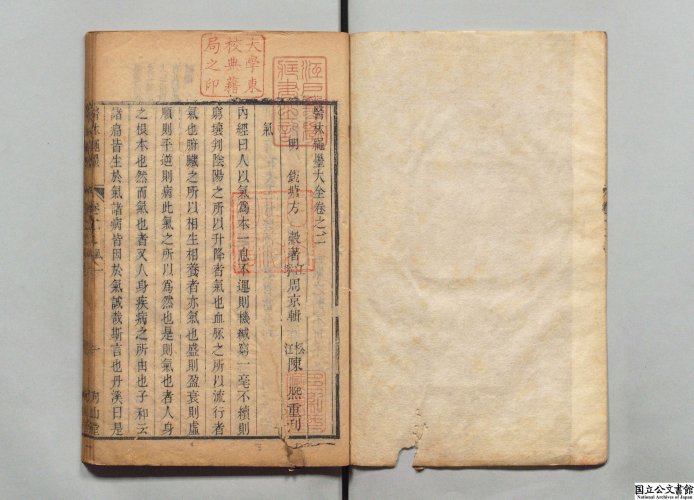 大學東
校典籍
局之印
醫林繩墨大全卷之二
明 錢塘方 穀著 江寧周京輯 松江陳 熙重刊
氣
內經曰人以氣爲本一息不運則機緘窮一毫不續則
窮壤判陰陽之所以升降者氣也血脉之所以流行者
氣也腑臟之所以相生相養者亦氣也盛則盈衰則虛
順則平逆則病此氣之所以爲然也是則氣也者人身
之根本也然而氣也者又人身疾病之所由也子和云
諸痛皆生於氣諸病皆因於氣誠哉斯言也丹溪曰是
国立公文書館
National Archives of Japan